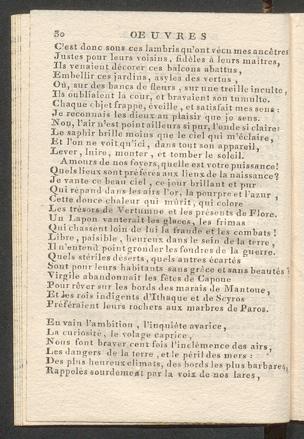 80 OEUVRES
C'est donc sous ces lambris qu'ont vécu mes ancêtres
Justes pour leurs voisins, fidèles à leurs maîtres,
Ils venaient décorer ces balcons abattus,
Embellir ces jardins, asyles des vertus,
Où, sur des bancs de fleurs, sur une treille inculte,
Ils oubliaient la cour, et bravaient son tumulte.
Chaque objet frappe, éveille, et satisfait mes sens:
Je reconnais les dieux au plaisir que je sens.
Non, l'air n'est point ailleurs si pur, l'onde si claire:
Le saphir brille moins que le ciel qui m'éclaire,
Et l'on ne voit qu'ici, dans tout son appareil,
Lever, luire, monter, et tomber le soleil.
Amours de nos foyers, quelle est votre puissance!
Quels lieux sont préférés aux lieux de la naissance?
Je vante ce beau ciel, ce jour brillant et pur
Qui répand dans les airs l'or, la pourpre et l'azur,
Cette douce chaleur qui mûrit, qui colore
Les trésors de Vertumne et les présents de Flore.
Un Lapon vanterait les glaces, les frimas
Qui chassent loin de lui la fraude et les combats!
Libre, paisible, heureux dans le sein de la terre,
Il n'entend point gronder les foudres de la guerre.
Quels stériles déserts, quels antres écartés
Sont pour leurs habitants sans grâce et sans beautés?
Virgile abandonnait les fêtes de Capoue
Pour rêver sur les bords des marais de Mantoue,
Et les rois indigents d'Ithaque et de Scyros
Préféraient leurs rochers aux marbres de Paros.
En vain l'ambition, l'inquiète avarice,
La curiosité, le volage caprice,
Nous font braver cent fois l'inclémence des airs,
Les dangers de la terre, et le péril des mers:
Des plus heureux climats, des bords les plus barbares,
Rappelés sourdement par la voix de nos lares,